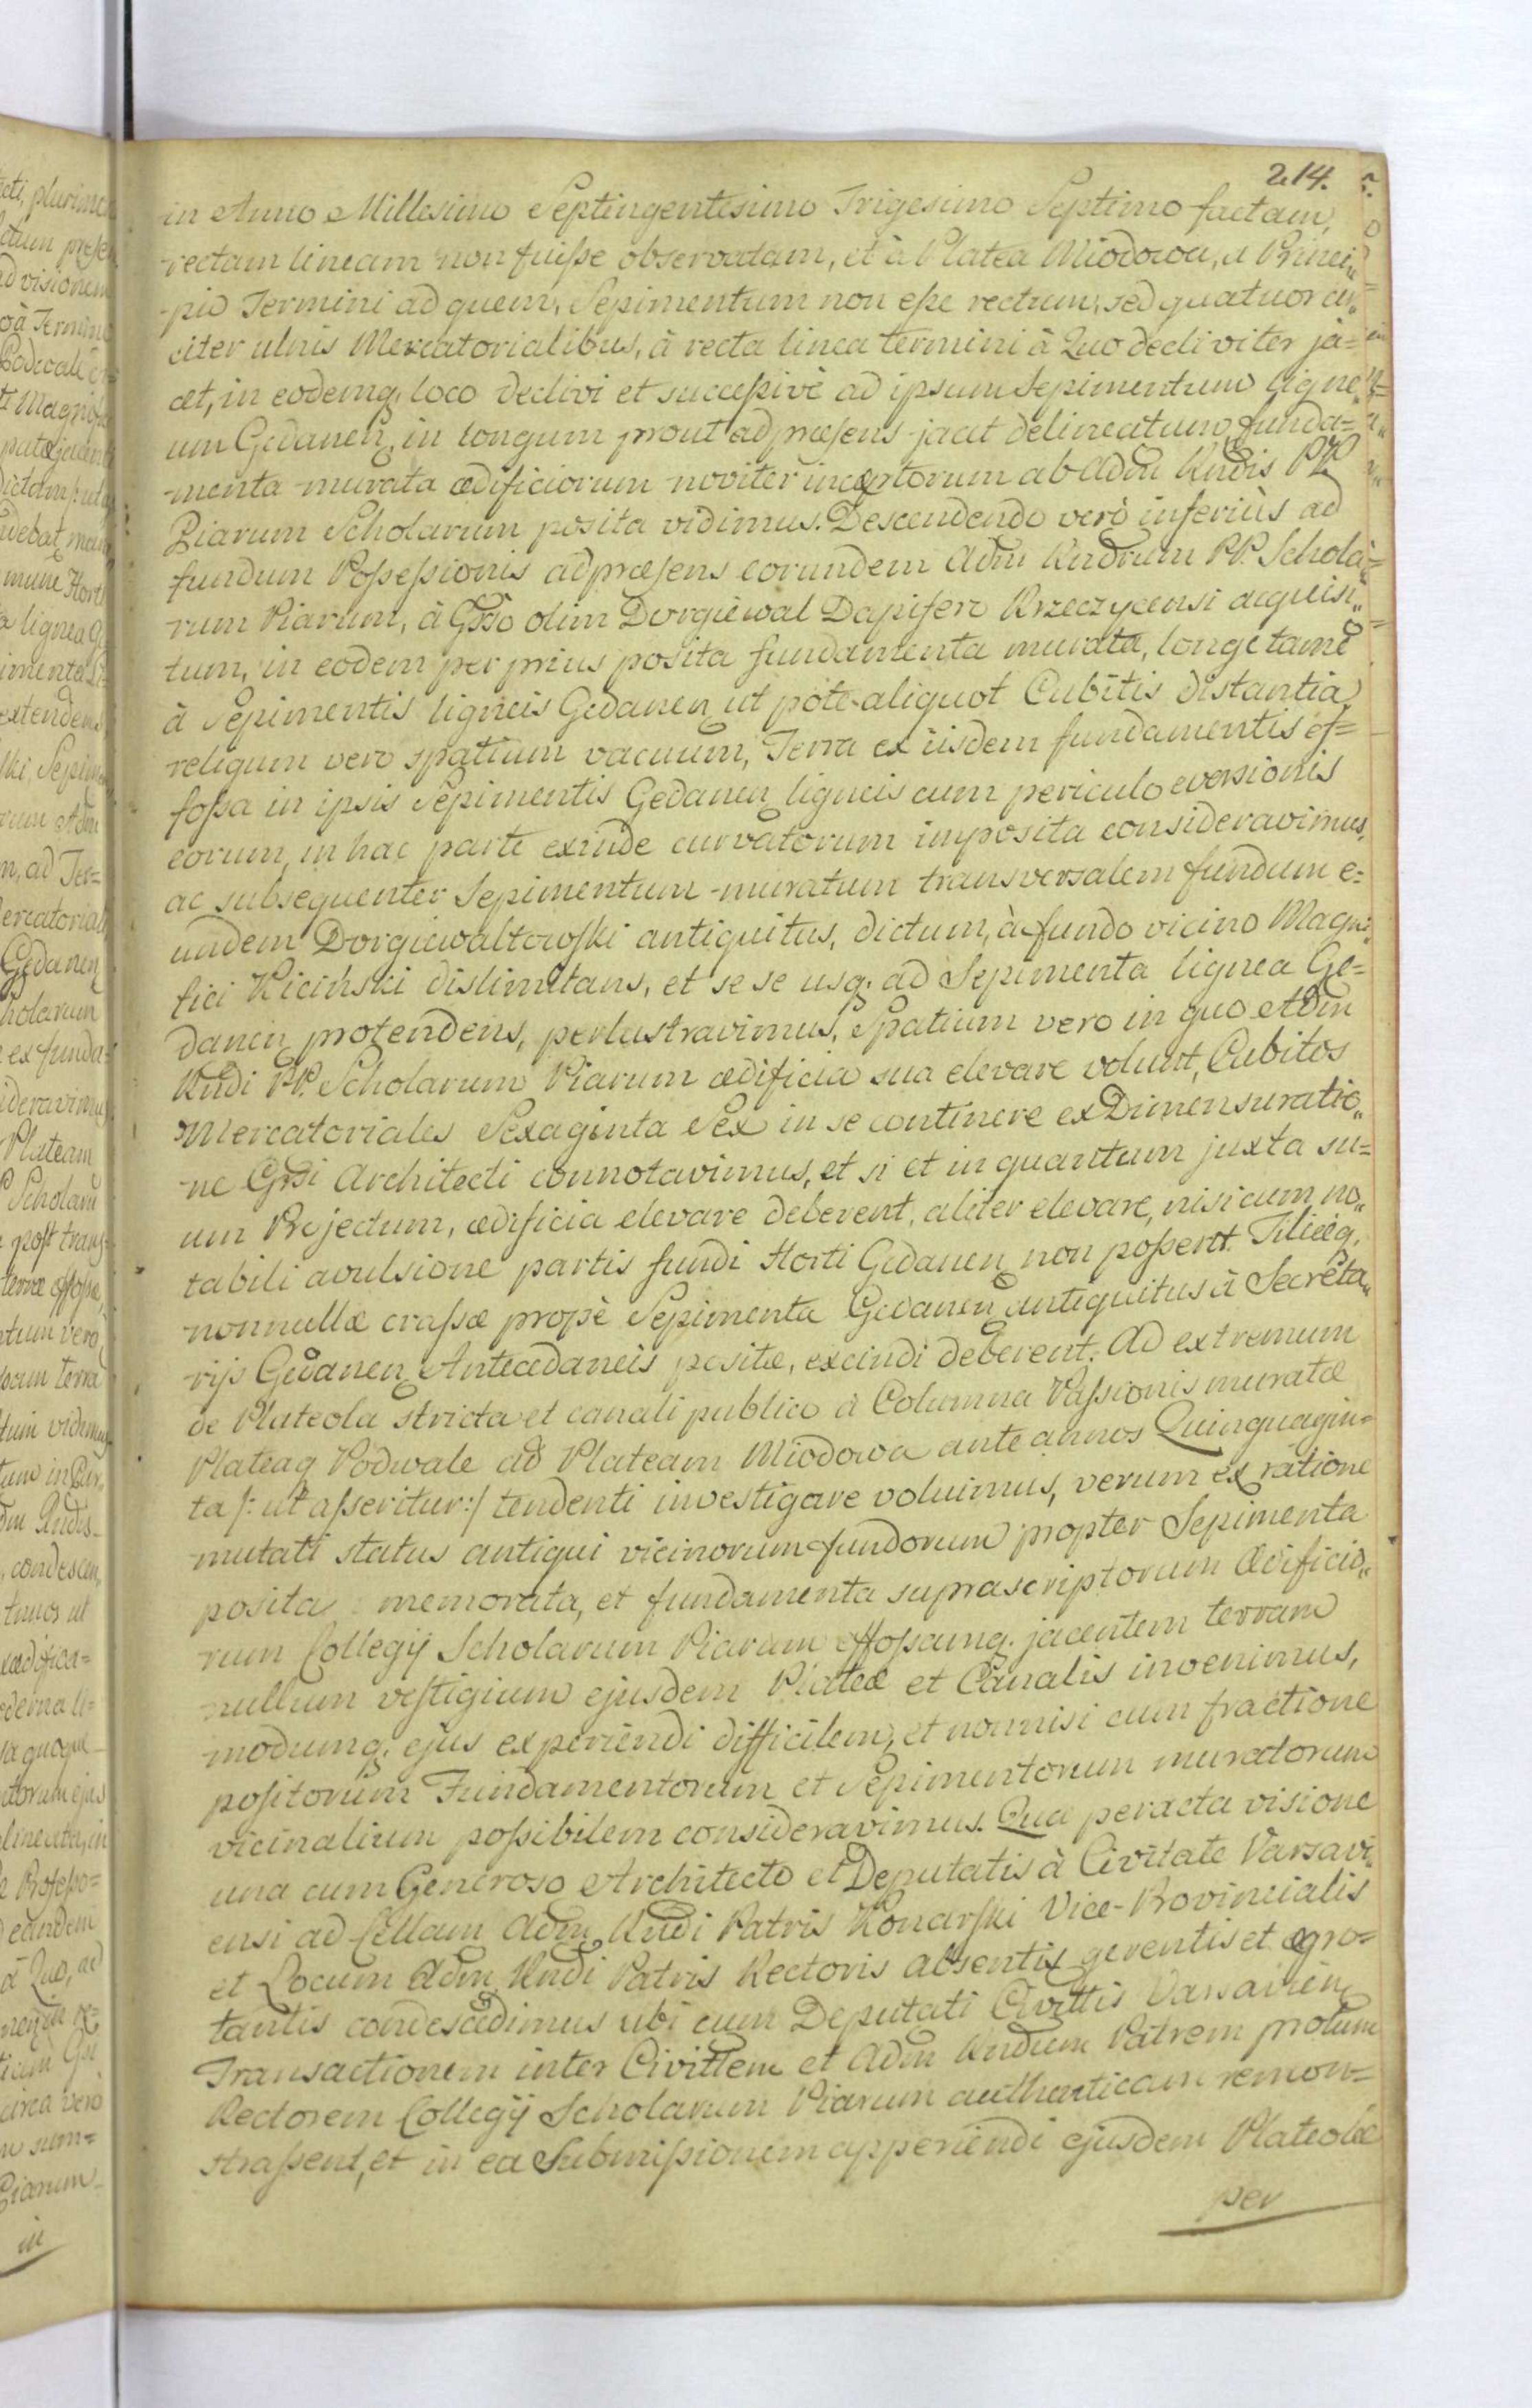 214.
in Anno Millesimo Septingentesimo Trigesimo Septimo factam,
rectam lineam non fuiſse observatam, et à Platea Miodowa, a Princi„
-pio Termini ad quem, Sepimentum non eſse rectum, sed quatuor cir„
citer ulnis Mercatorialibus, à recta linea termini à Quo decliviter ja=
cet, in eodemq. loco declivi et succeſsivè ad ipsum Sepimentum ligne„
um Gedanen, in longum prout ad præsens jacet delineatum, funda=
-menta murata ædificiorum noviter inceptorum ab Adm Rndis PP.
Piarum Scholarum posita vidimus. Descendendo verò inferiùs ad
fundum Poſseſsionis ad præsens eorundem Adm Rndrum PP. Schola=
rum Piarum, à Gsso olim Dorgiewal Dapifero Krzeczycensi acquisi„
tum, in eodem per prius posita fundamenta murata, longe tamē
à Sepimentis ligneis Gedanen ut pote aliquot Cubitis distantia
reliqum vero spatium vacuum, Terra ex iisdem fundamentis ef=
foſsa in ipsis Sepimentis Gedanen ligneis cum periculo eversionis
eorum, in hac parte exinde curvatorum imposita consideravimus,
ac subsequenter Sepimentum muratum transversalem fundum e=
undem Dorgiewaltowſki antiquitus, dictum, à fundo vicino Magni„
fici Kiciński dislimitans, et se se usq. ad Sepimenta lignea Ge=
danen protendens, perlustravimus, Spatium vero in quo Adm
Rndi PP. Scholarum Piarum ædificia sua elevare volunt, Cubitos
Mercatoriales Sexaginta Sex in se continere ex Dimensuratio„
ne Gssi Architecti connotavimus, et si et in quantum juxta su=
um Projectum, ædificia elevare deberent, aliter elevare, nisi cum no„
tabili avulsione partis fundi Horti Gedanen non poſsent. Tiliæq.
nonnullæ craſsæ propè Sepimenta Gedanen antiquitus à Secreta„
rijs Gedanen Antecedaneis positæ, excindi deberent. Ad extremum
de Plateola stricta et canali publico à Columna Paſsionis muratæ
Plateaq Podwale ad Plateam Miodowa ante annos Quinquagin=
ta /: ut aſseritur :/ tendenti investigare voluimus, verum ex ratione
mutati status antiqui vicinorum fundorum propter Sepimenta
posita memorata, et fundamenta suprascriptorum Ædificio„
rum Collegij Scholarum Piarum effoſsamq. jacentem terram
nullum veſtigium ejusdem Plateæ et Canalis invenimus,
modumq. ejus experiendi difficilem, et nonnisi cum fractione
poſitorum Fundamentorum et Sepimentorum muratorum
vicinalium poſsibilem consideravimus. Qua peracta visione
una cum Generoso Architecto et Deputatis à Civitate Varsavi„
ensi ad Cellam Adm Rndi Patris Konarſki Vice-Provincialis
et Locum Adm Rndi Patris Rectoris absentis gerentis et ægro=
tantis condescedimus ubi cum Deputati Civittis Varsavien
Transactionem inter Civittem et Adm Rndum Patrem protunc
Rectorem Collegij Scholarum Piarum authenticam remon=
straſsent, et in ea Submiſsionem apperiendi ejusdem Plateolæ
per